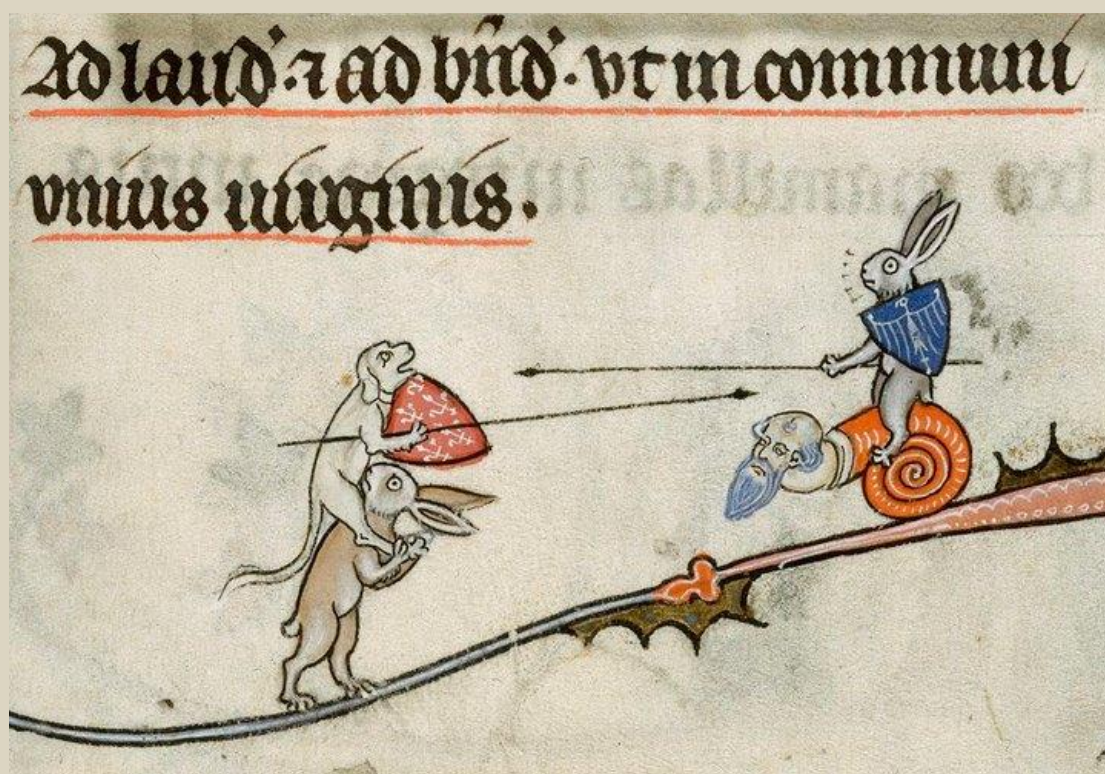 Ad laud̉. ⁊ ad bn̄d̉. vt in communi
vnius uirginis.